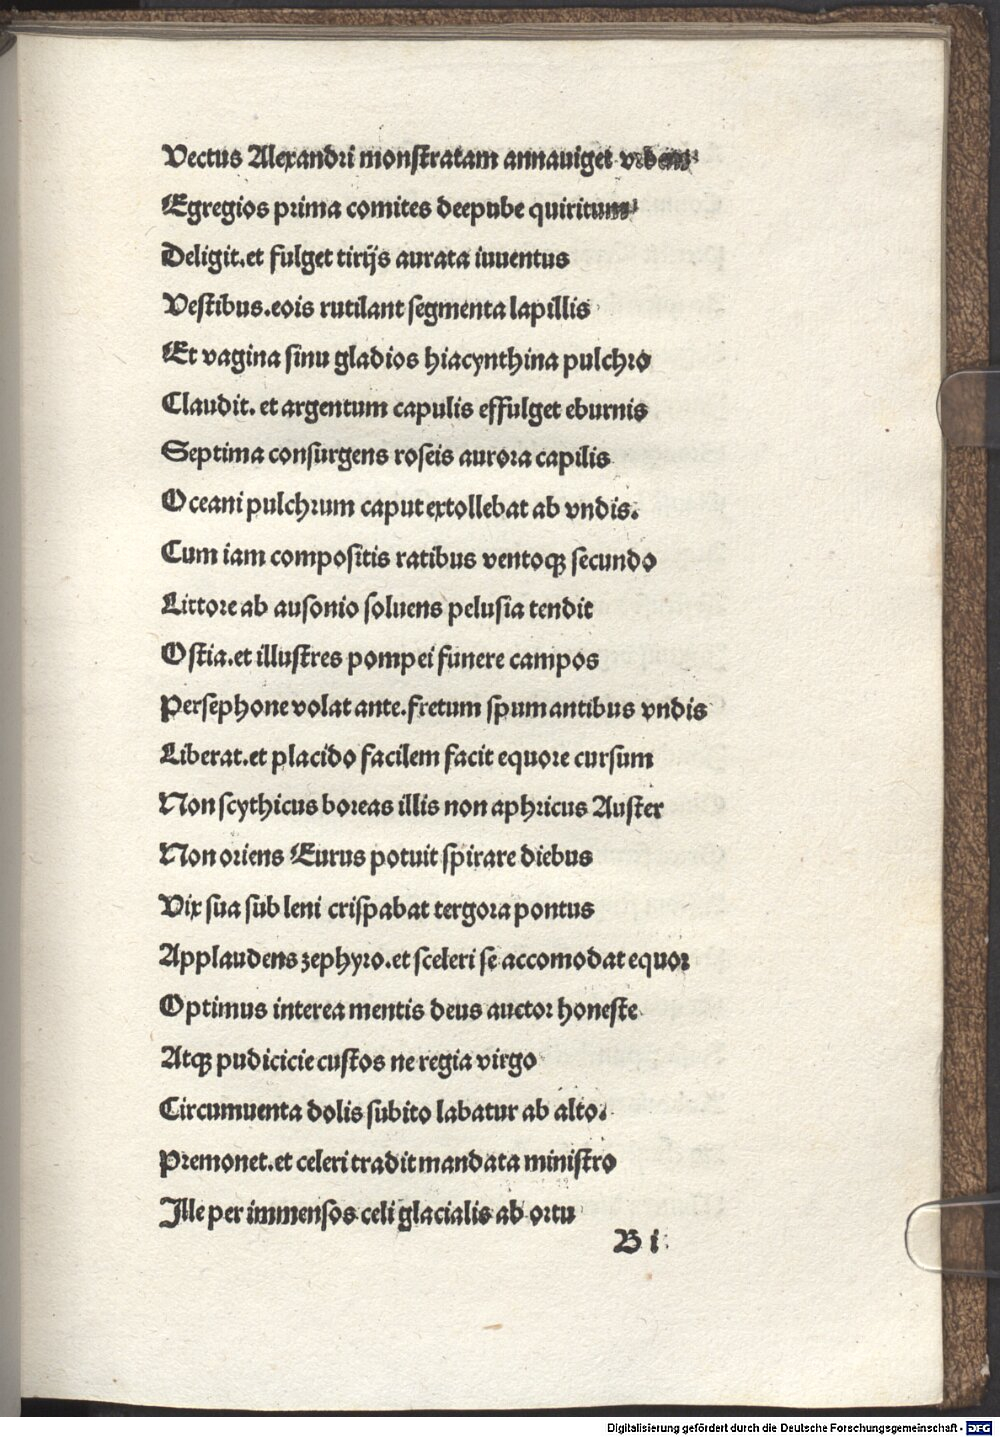 Vectus Alexandri monstratam annauiget vrbem
Egregios prima comites deepube quiritum
Deligit.et fulget tirijs aurata iuuentus
Vestibus.eois rutilant segmenta lapillis
Et vagina sinu gladios hiacynthina pulchro
Claudit. et argentum capulis effulget eburnis
Septima consurgens roseis aurora capilis
Oceani pulchrum caput extollebat ab vndis.
Cum iam compositis ratibus ventoqꝫ secundo
Littore ab ausonio soluens pelusia tendit
Ostia.et illustres pompei funere campos
Persephone volat ante.fretum spumantibus vndis
Liberat.et placido facilem facit equore cursum
Non scythicus boreas illis non aphricus Auster
Non oriens Eurus potuit spirare diebus
Vix sua sub leni crispabat tergora pontus
Applaudens zephyro.et sceleri se accomodat equor
Optimus interea mentis deus auctor honeste
Atqꝫ pudicicie custos ne regia virgo
Circumuenta dolis subito labatur ab alto.
Premonet.et celeri tradit mandata ministro
Ille per immensos celi glacialis ab ortu
B i
Digitalisierung gefördert durch die Deutsche Forschungsgemeinschaft - DFG